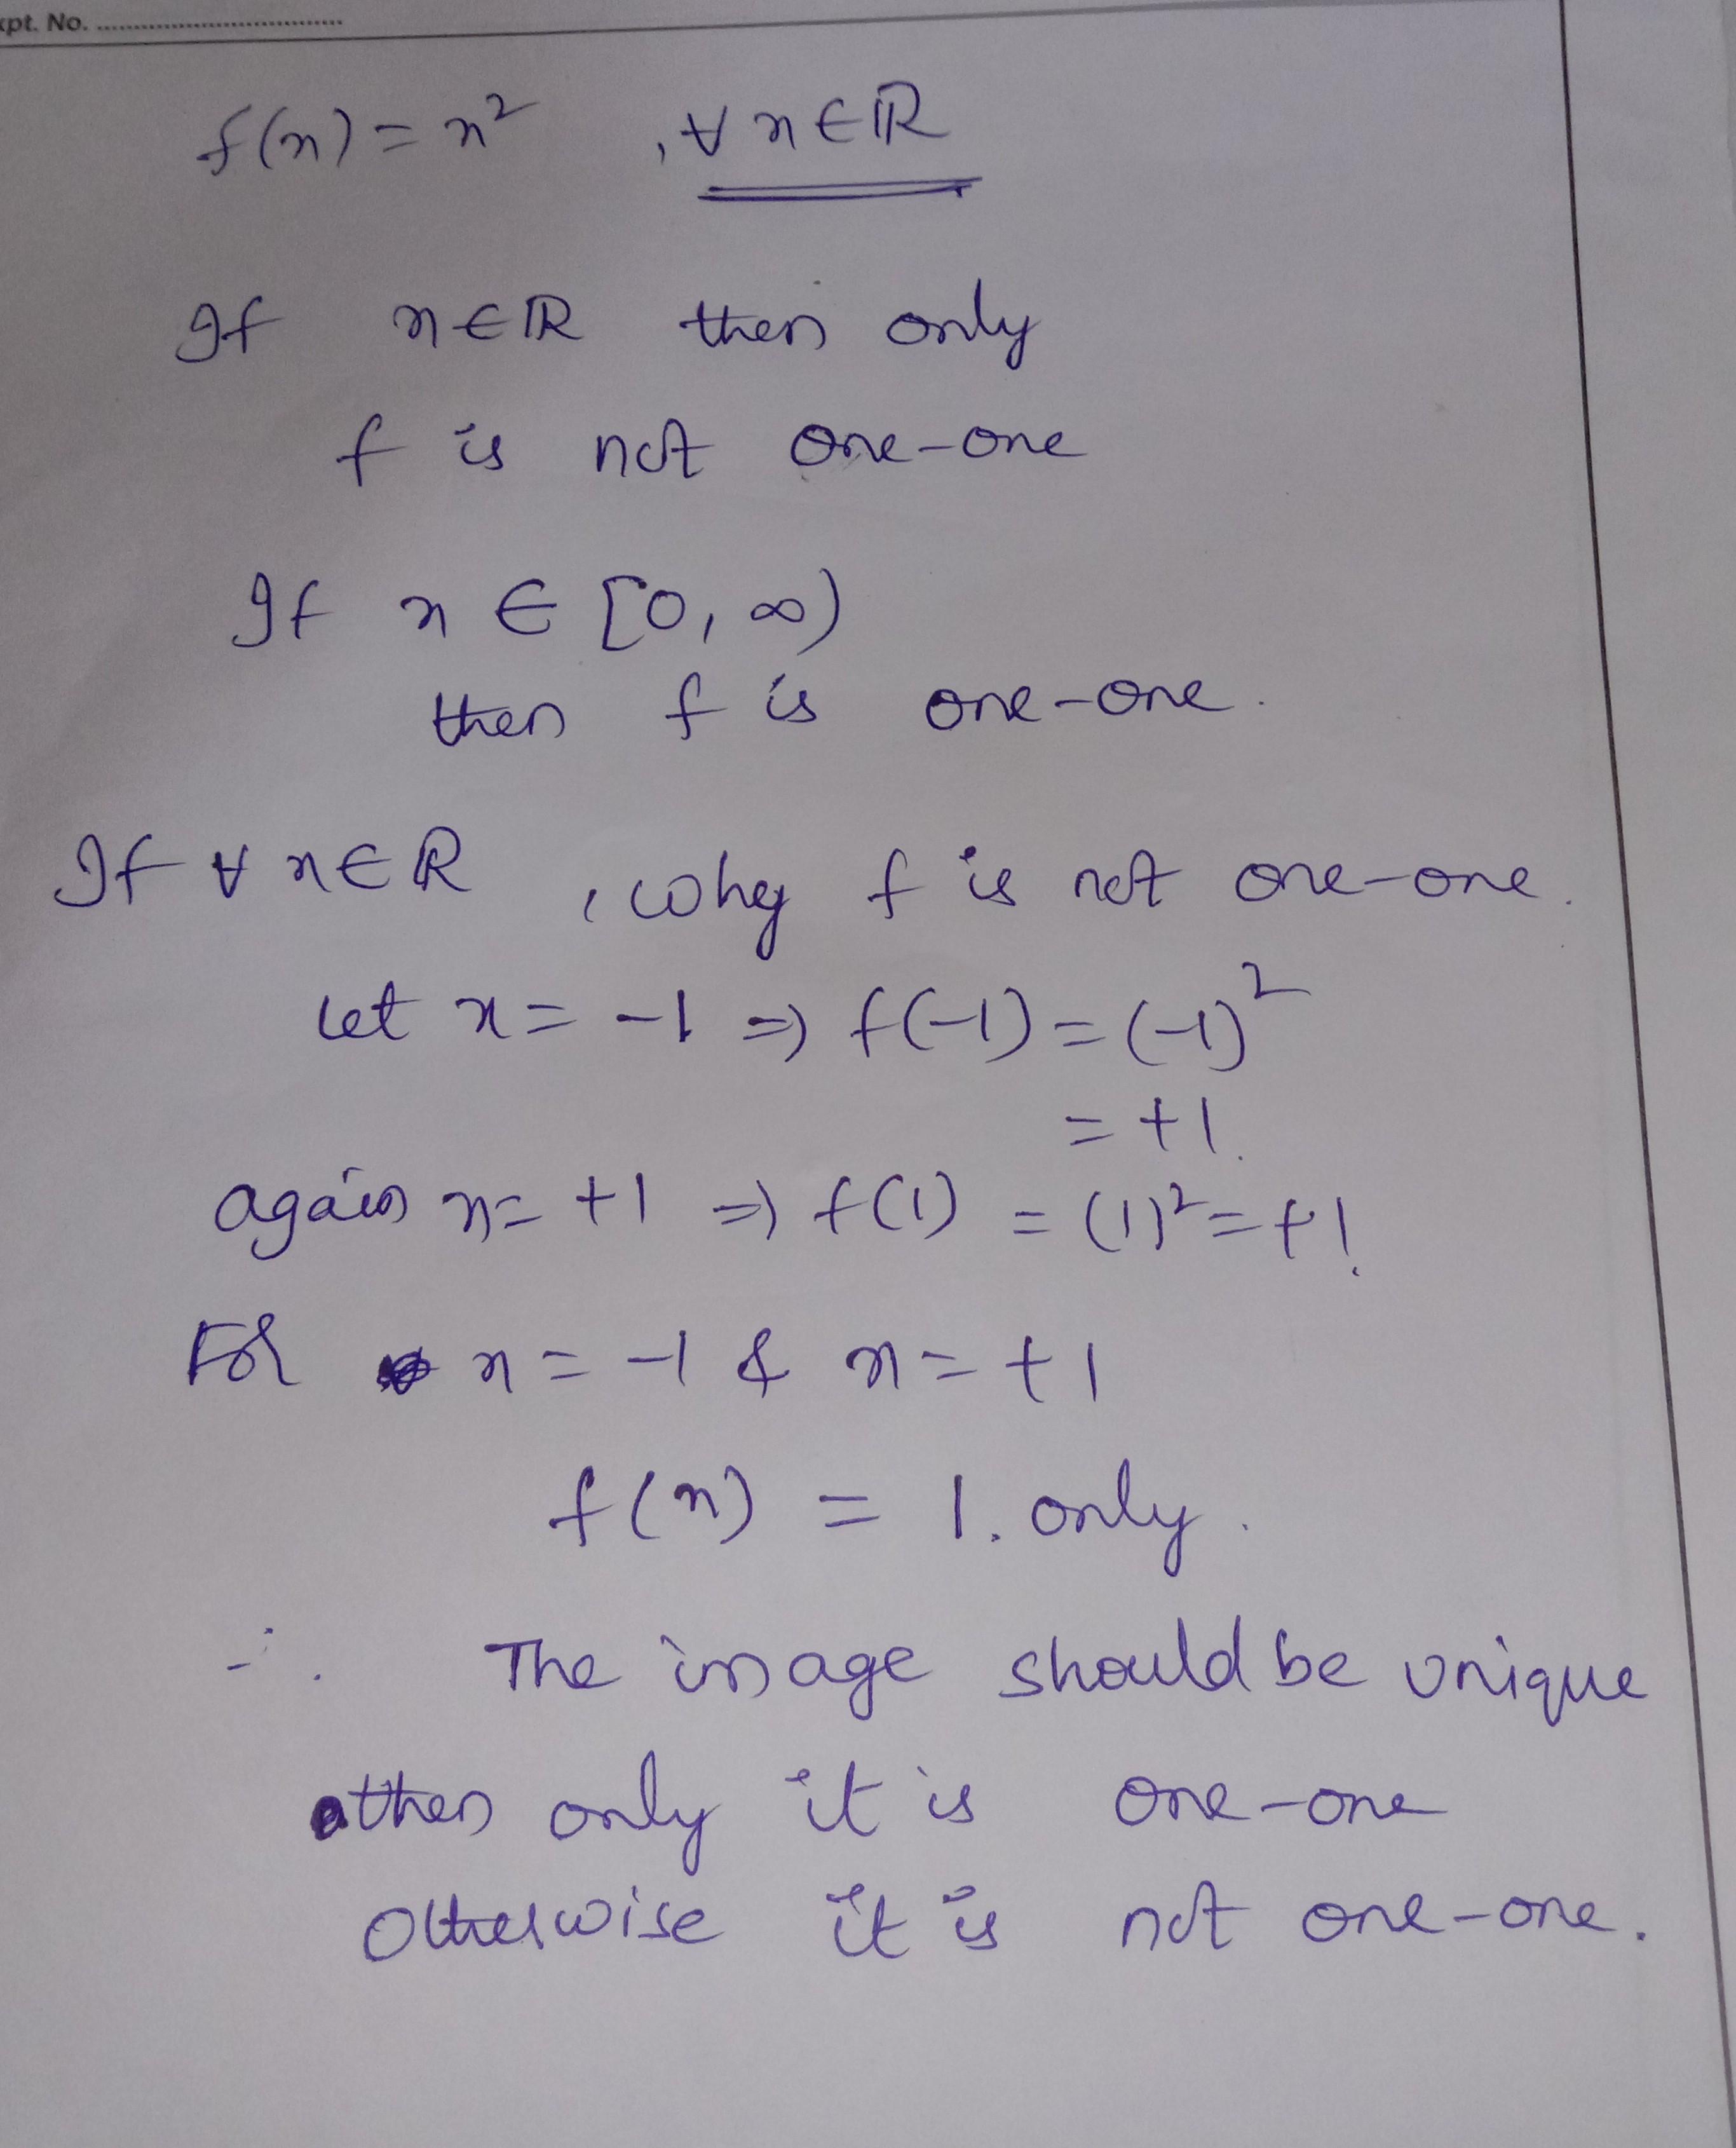 xpt. No. ....................................
f(x) = x² , ∀ x ∈ ℝ
If x ∈ ℝ then only
f is not one-one
If x ∈ [0, ∞)
then f is one-one.
If ∀ x ∈ ℝ , why f is not one-one.
Let x = -1 ⇒ f(-1) = (-1)²
= +1.
again x = +1 ⇒ f(1) = (1)² = +1.
For x = -1 & x = +1
f(x) = 1. only.
∴ The image should be unique
then only it is one-one
Otherwise it is not one-one.